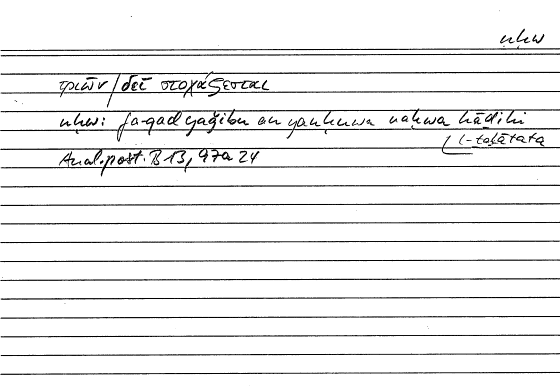 nḥw
τριῶν / δεῖ στοχάζεσθαι
nḥw: fa-qad yaǧibu an yanḥuwa naḥwa hāḏihi
l-ṯalāṯata
Anal. post. B 13, 97a 24